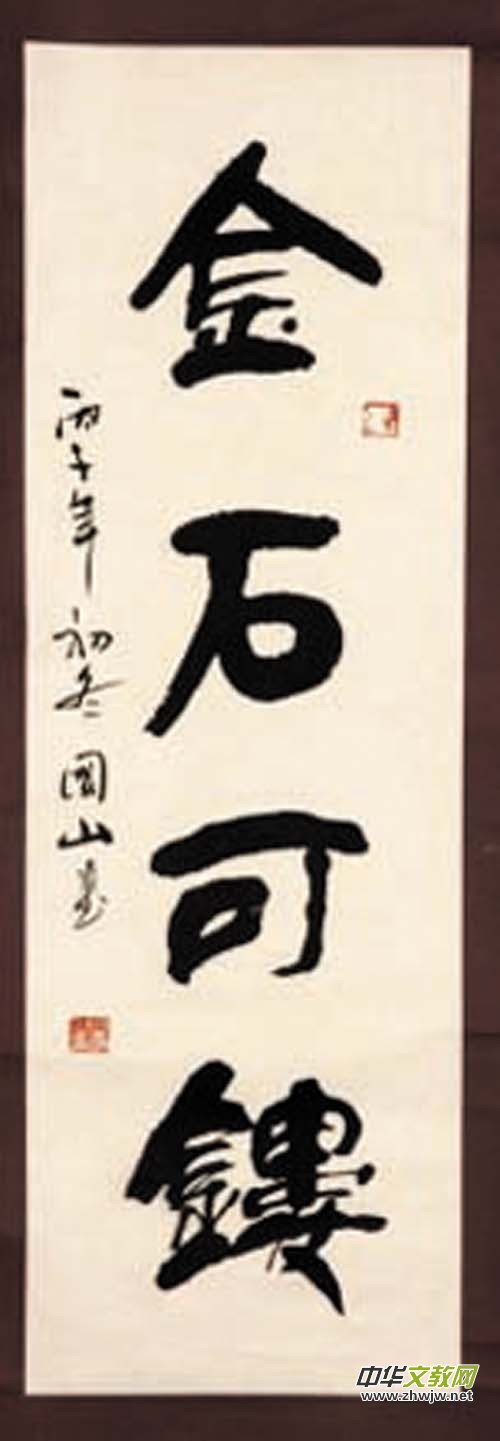 金石可鏤
丙子年初冬國山書
中华文教网
www.zhwjw.net